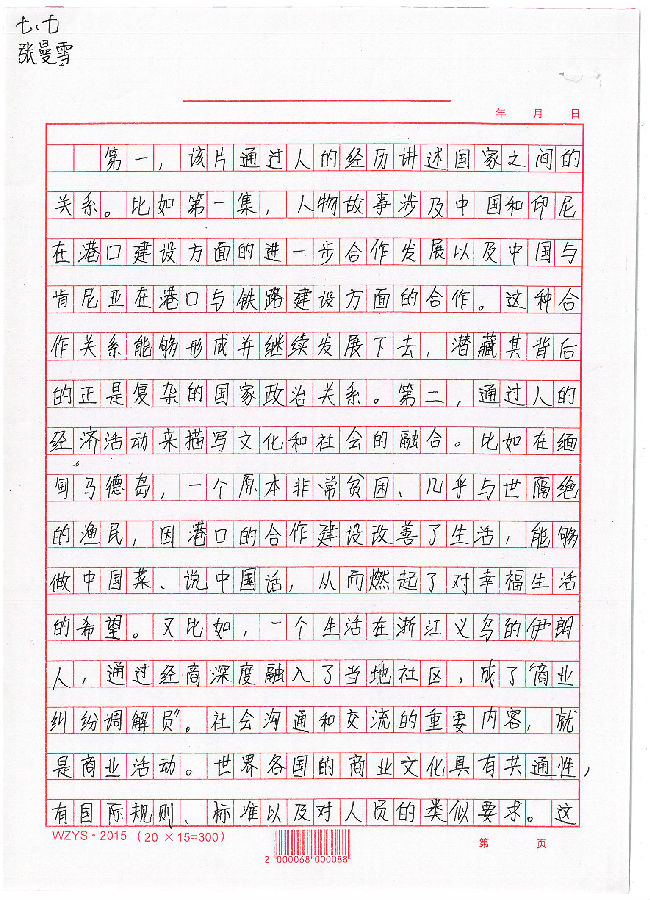 七、七
张曼雪
年 月 日
第一，该片通过人的经历讲述国家之间的
关系。比如第一集，人物故事涉及中国和印尼
在港口建设方面的进一步合作发展以及中国与
肯尼亚在港口与铁路建设方面的合作。这种合
作关系能够形成并继续发展下去，潜藏其背后
的正是复杂的国家政治关系。第二，通过人的
经济活动来描写文化和社会的融合。比如在缅
甸马德岛，一个原本非常贫困、几乎与世隔绝
的渔民，因港口的合作建设改善了生活，能够
做中国菜、说中国话，从而燃起了对幸福生活
的希望。又比如，一个生活在浙江义乌的伊朗
人，通过经商深度融入了当地社区，成了“商业
纠纷调解员”。社会沟通和交流的重要内容，就
是商业活动。世界各国的商业文化具有共通性，
有国际规则、标准以及对人员的类似要求。这
WZYS-2015 (20×15=300)
第 页
2 000068 000088